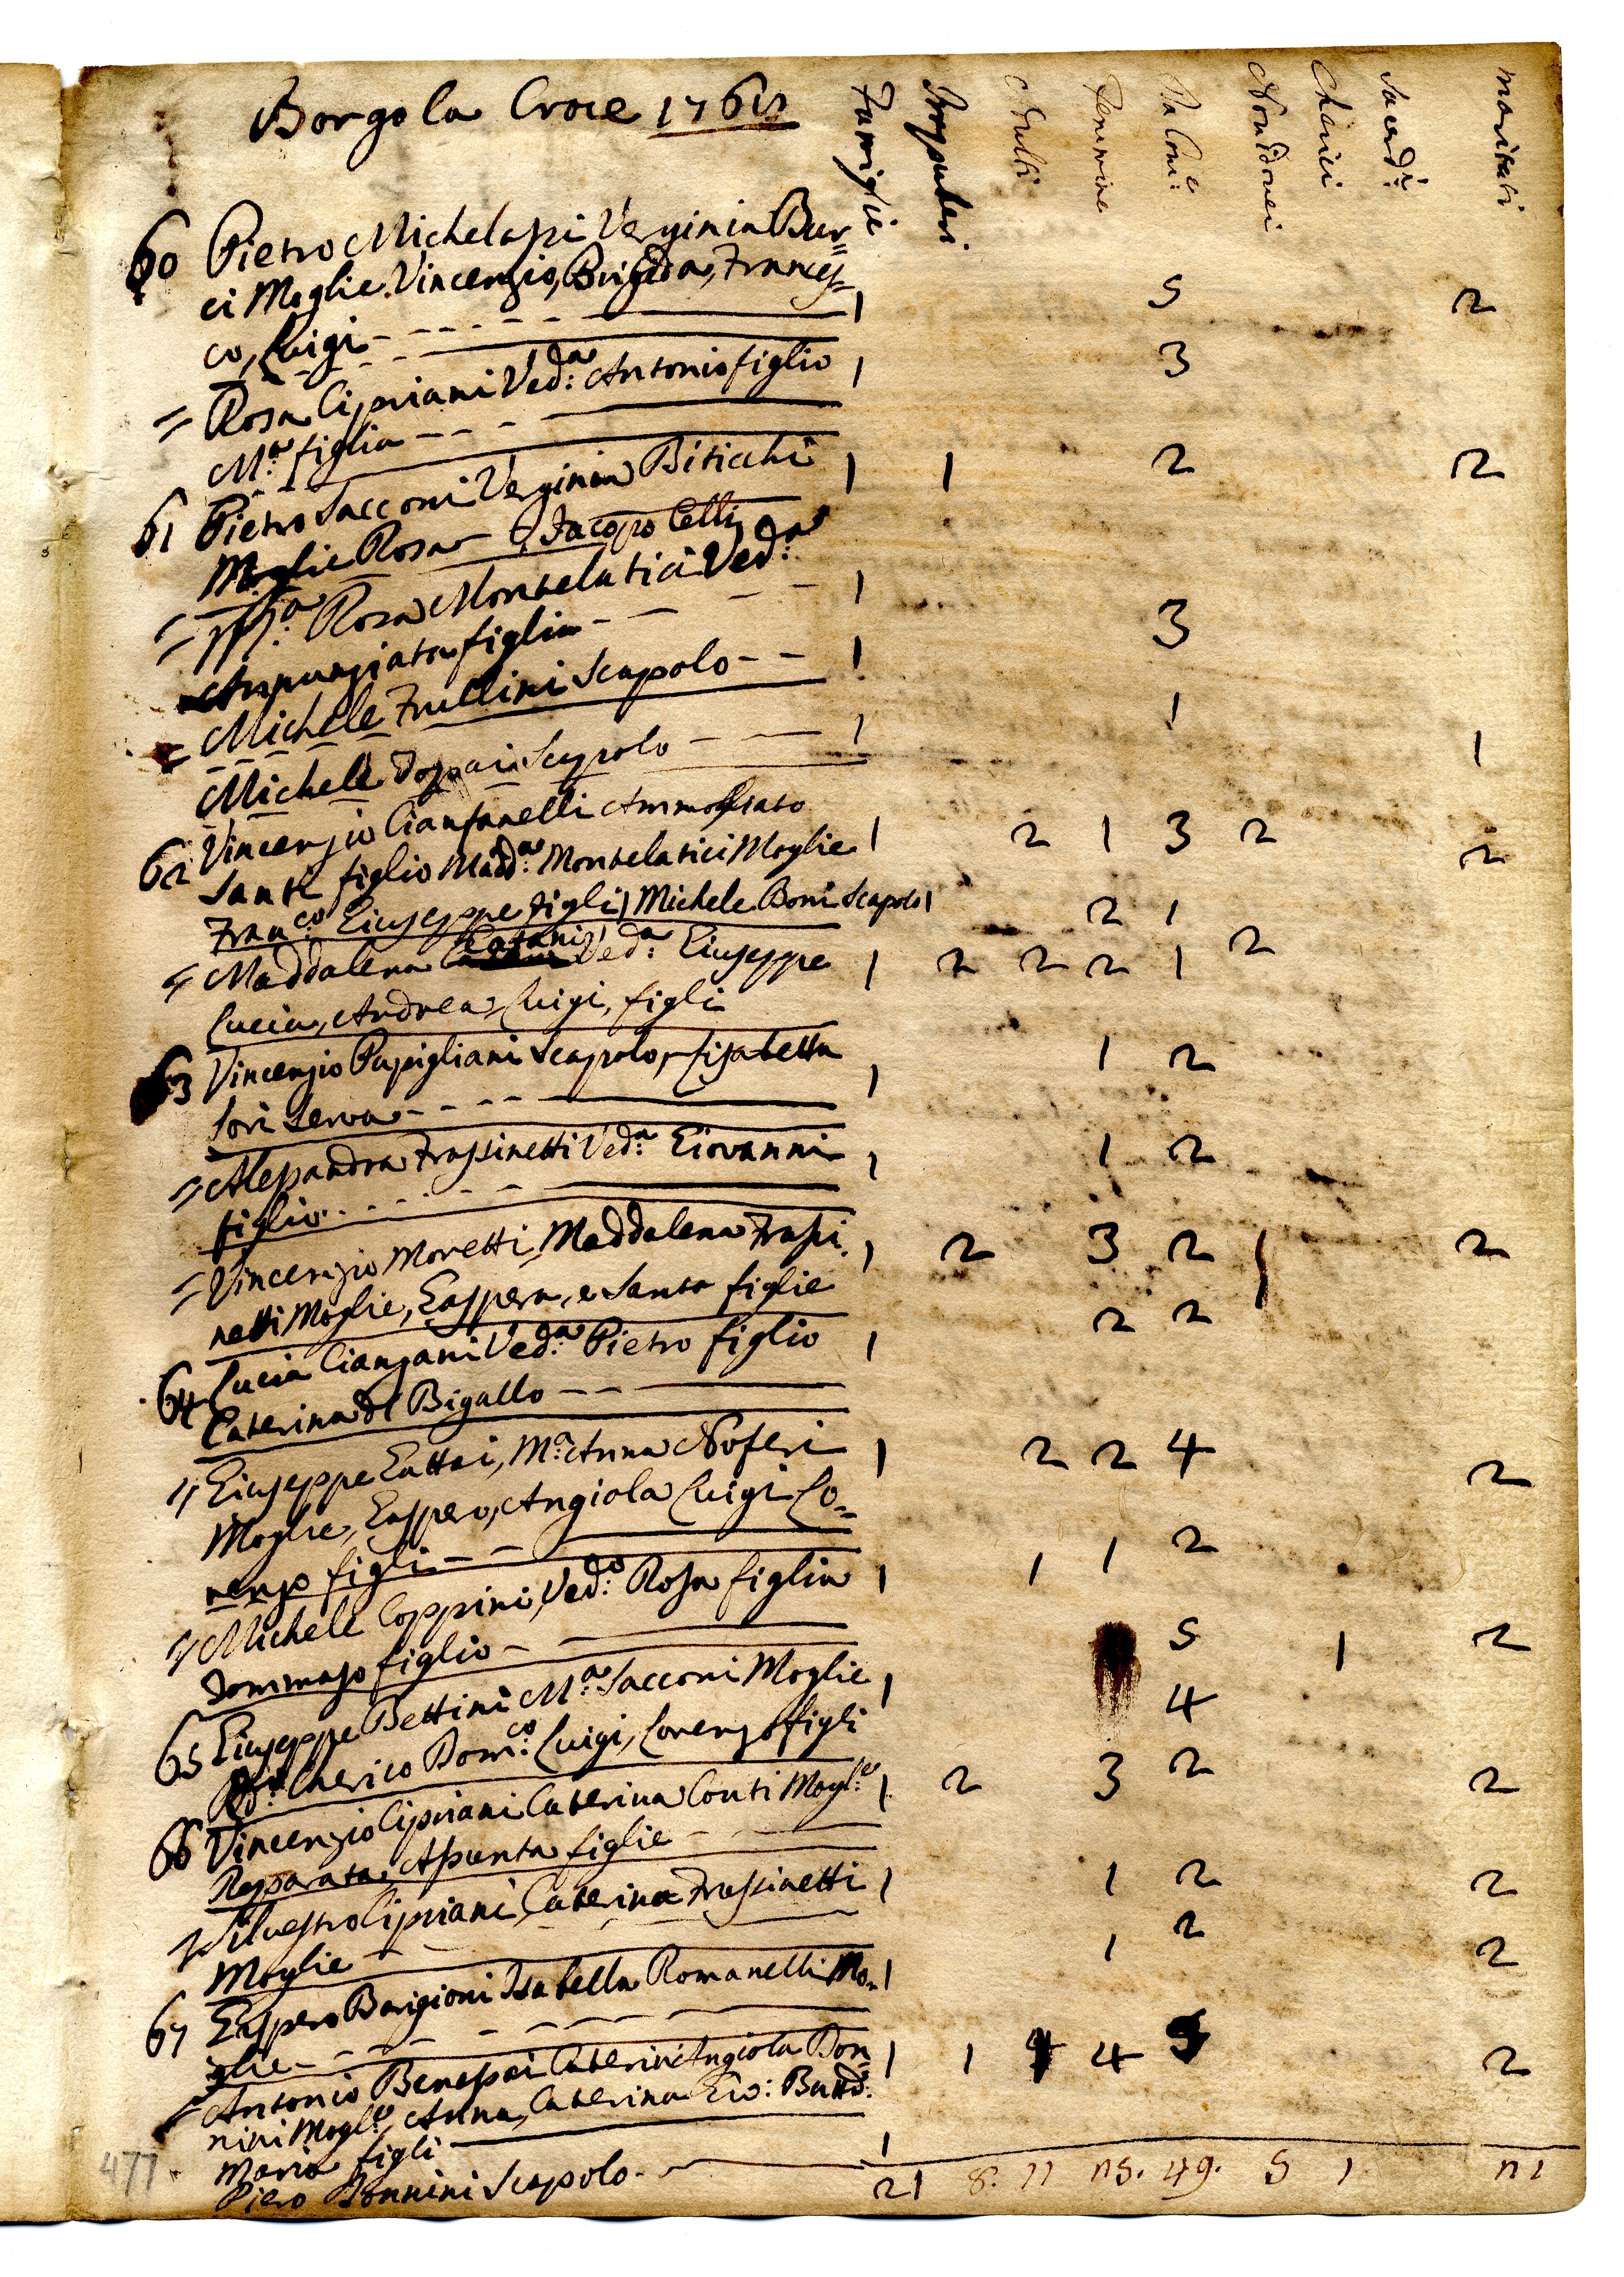 Borgo la Croce 1762
Famiglie Impuberi Adulti Femmine Da Com:e Non Idonei Cherici Sacerd:i maritati
60 Pietro Michelassi Verginia Bur=
ci Moglie Vincenzio, Brigida, Frances=
co, Luigi 1 5 2
= Rosa Cipriani Ved:a Antonio figlio 1 3
M:a figlia
61 Pietro Sacconi Verginia Biticchi 1 1 2 2
Moglie Rosa Jacopo Celli
= Rosa Montelatici Ved:a
Annunziata figlia 1 3
= Michele Frullini Scapolo 1 1
Michele Scapolo 1 1
62 Vincenzio Cianfanelli Ammogliato
Santi figlio Madd:a Montelatici Moglie 1 2 1 3 2 2
Fran:co Giuseppe figli 1 Michele Boni Scapolo 1 2 1
= Maddalena Catani Ved:a Giuseppe 1 2 2 2 1 2
Lucia, Andrea, Luigi, figli
63 Vincenzio Papigliani Scapolo, Lisabetta 1 1 2
Sori Serva
= Alessandra Frassinetti Ved:a Giovanni 1 1 2
figlio
= Vincenzio Moretti Maddalena Frassi 1 2 3 2 1 2
netti Moglie, Gaspera, e Santa figlie
64 Lucia Cianzani Ved:a Pietro figlio 1 2 2
Caterina di Bigallo
= Giuseppe Gattai, M:a Anna Noferi 1 2 2 4 2
Moglie, Gaspero, Angiola Luigi Lo=
renzo figli
= Michele Coppini, Ved:o Rosa figlia 1 1 1 2
Tommaso figlio
65 Giuseppe Bettini M:a Sacconi Moglie 1 5 1 2
Cherico Dom:co Luigi, Lorenzo figli 4
66 Vincenzio Cipriani Caterina Conti Mogl:e 1 2 3 2 2
Reparata, Assunta figlie
= Silvestro Cipriani, Caterina Frassinetti 1 1 2 2
Moglie
67 Gaspero Barigioni Isabella Romanelli Mo= 1 1 2 2
glie
= Antonio Benassai Caterin Angiola Don= 1 1 4 4 5 2
nini Mogl:e, Anna, Caterina Gio: Batt:a
Maria figli
Piero Donnini Scapolo 1
21 8. 11 25. 49. 5 1 21
477